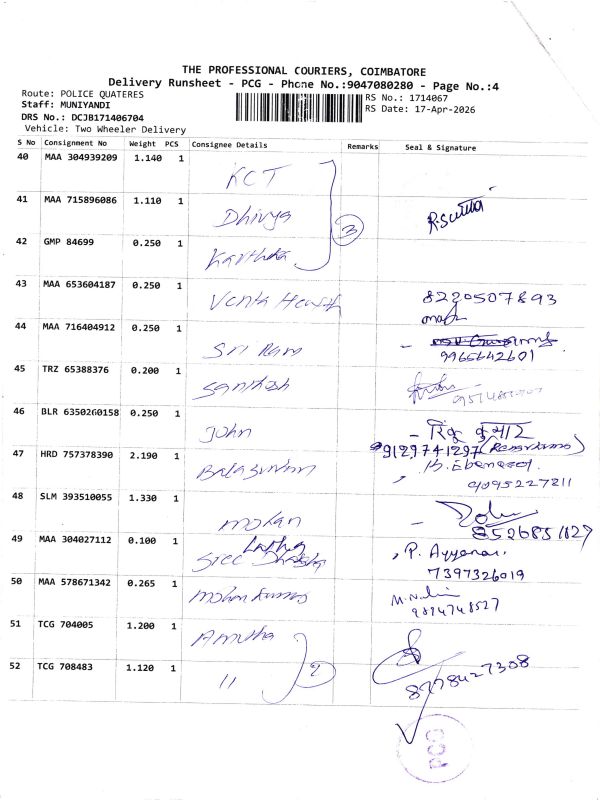 THE PROFESSIONAL COURIERS, COIMBATORE
Delivery Runsheet - PCG - Phone No.:9047080280 - Page No.:4
Route: POLICE QUATERES
Staff: MUNIYANDI
DRS No.: DCJB171406704
Vehicle: Two Wheeler Delivery
RS No.: 1714067
RS Date: 17-Apr-2026
S No Consignment No Weight PCS Consignee Details Remarks Seal & Signature
40 MAA 304939209 1.140 1 KCT
41 MAA 715896086 1.110 1 Dhivya 3
42 GMP 84699 0.250 1
43 MAA 653604187 0.250 1 8220507893
44 MAA 716404912 0.250 1 Sri Ram 9965642601
45 TRZ 65388376 0.200 1 Santhosh
46 BLR 6350260158 0.250 1 John
47 HRD 757378390 2.190 1 9129741297
9095227211
48 SLM 393510055 1.330 1 mohan 8526851827
49 MAA 304027112 0.100 1 Sree P. Ayyanar.
7397326019
50 MAA 578671342 0.265 1 mohan kumar
9894748527
51 TCG 704005 1.200 1 Amutha 2
52 TCG 708483 1.120 1 11 8778427308
PCG